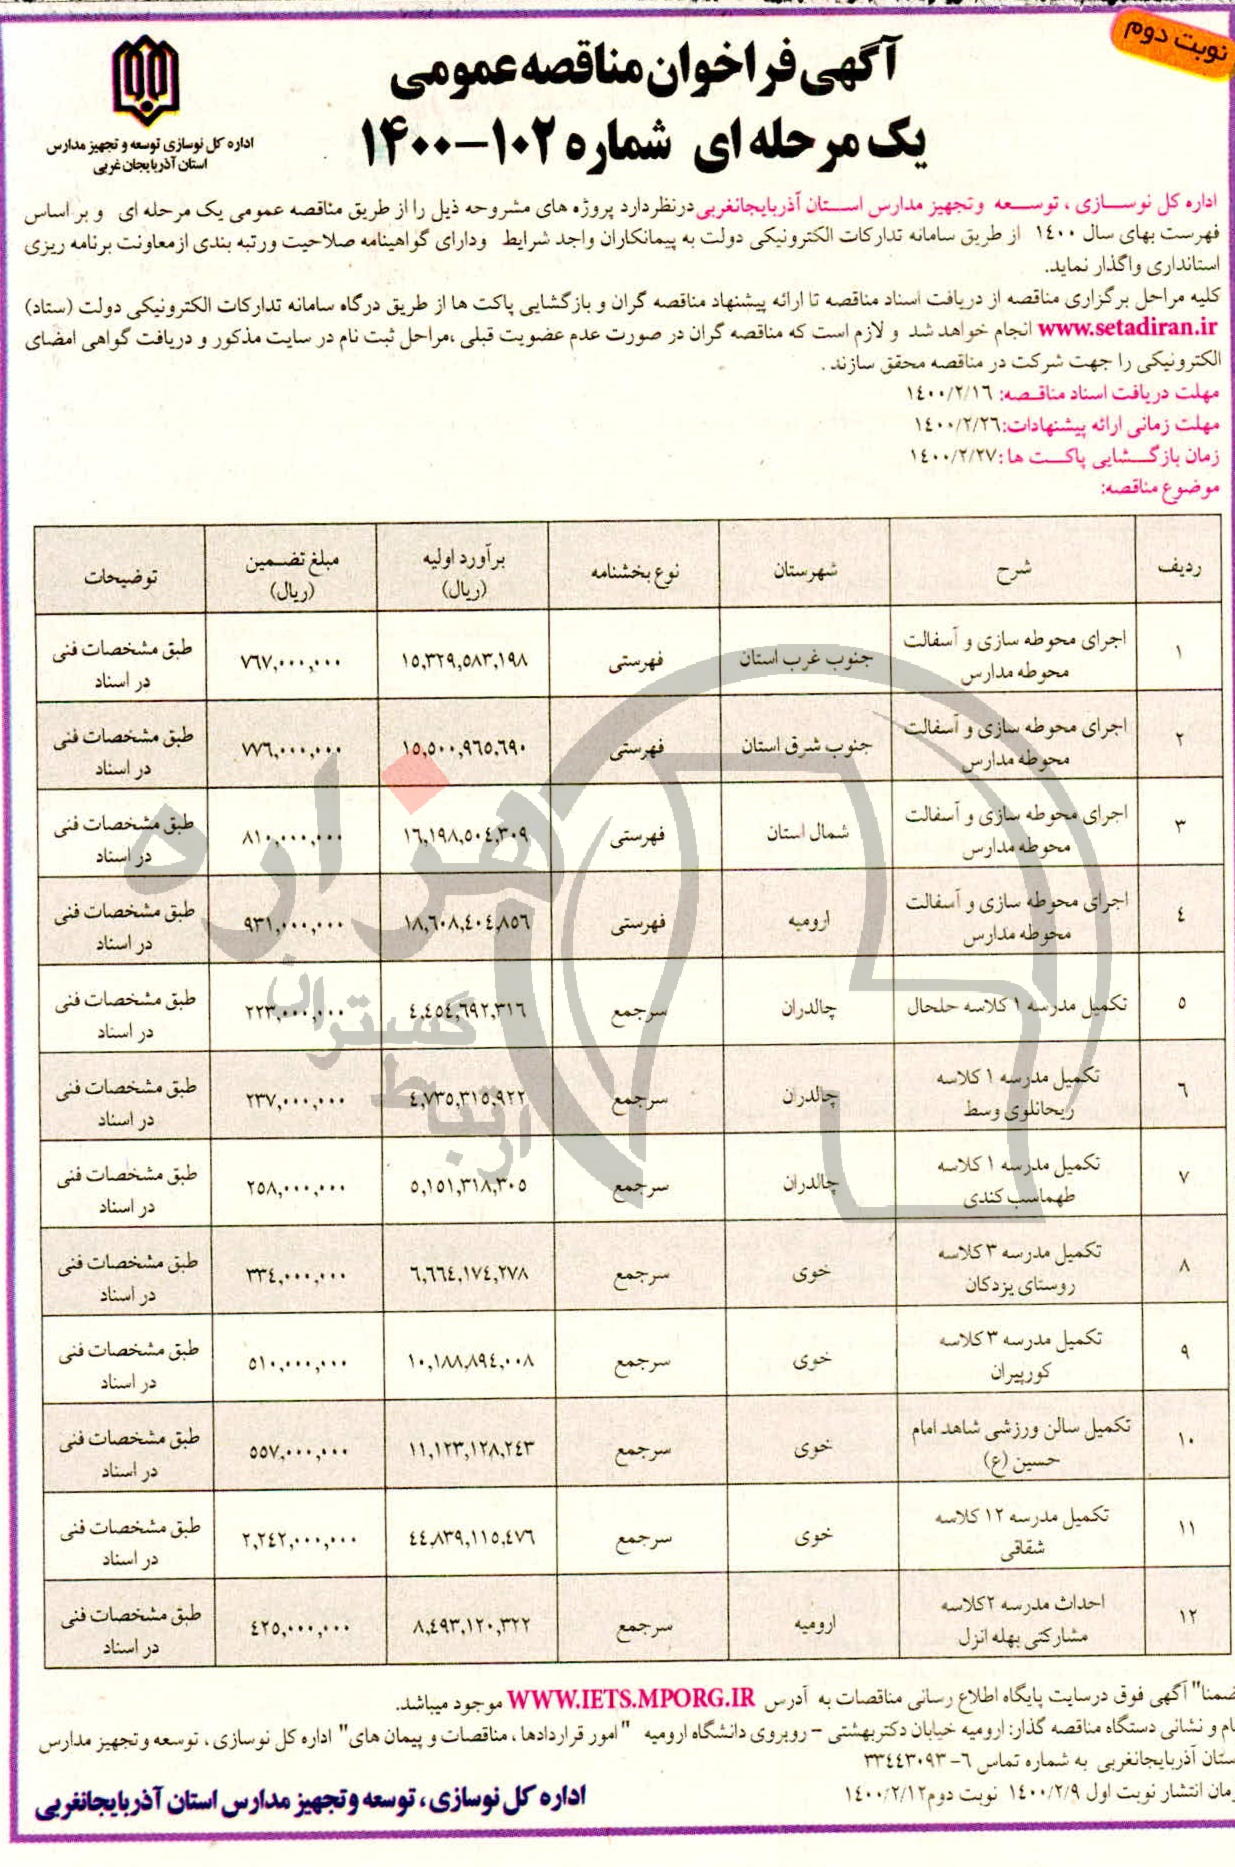 نوبت دوم
آگهی فراخوان مناقصه عمومی
یک مرحله ای شماره ۱۰۲-۱۴۰۰
اداره کل نوسازی توسعه و تجهیز مدارس
استان آذربایجان غربی
اداره کل نوســازی ، توســعه وتجهیز مدارس اســتان آذربایجانغربی درنظردارد پروژه های مشروحه ذیل را از طریق مناقصه عمومی یک مرحله ای و بر اساس
فهرست بهای سال ۱٤۰۰ از طریق سامانه تدارکات الکترونیکی دولت به پیمانکاران واجد شرایط ودارای گواهینامه صلاحیت ورتبه بندی ازمعاونت برنامه ریزی
استانداری واگذار نماید.
کلیه مراحل برگزاری مناقصه از دریافت اسناد مناقصه تا ارائه پیشنهاد مناقصه گران و بازگشایی پاکت ها از طریق درگاه سامانه تدارکات الکترونیکی دولت (ستاد)
www.setadiran.ir انجام خواهد شد و لازم است که مناقصه گران در صورت عدم عضویت قبلی ،مراحل ثبت نام در سایت مذکور و دریافت گواهی امضای
الکترونیکی را جهت شرکت در مناقصه محقق سازند .
مهلت دریافت اسناد مناقـصه: ۱٤۰۰/۲/۱٦
مهلت زمانی ارائه پیشنهادات:۱٤۰۰/۲/۲٦
زمان بازگــشایی پاکــت ها :۱٤۰۰/۲/۲۷
موضوع مناقصه:
ردیف شرح شهرستان نوع بخشنامه برآورد اولیه (ریال) مبلغ تضـمین (ریال) توضیحات
۱ اجرای محوطه سازی و آسفالت محوطه مدارس جنوب غرب استان فهرستی ۱٥,۳۲۹,٥۸۳,۱۹۸ ۷٦۷,۰۰۰,۰۰۰ طبق مشخصات فنی در اسناد
۲ اجرای محوطه سازی و آسفالت محوطه مدارس جنوب شرق استان فهرستی ۱٥,٥۰۰,۹٦٥,٦۹۰ ۷۷٦,۰۰۰,۰۰۰ طبق مشخصات فنی در اسناد
۳ اجرای محوطه سازی و آسفالت محوطه مدارس شمال استان فهرستی ۱٦,۱۹۸,٥۰٤,۳۰۹ ۸۱۰,۰۰۰,۰۰۰ طبق مشخصات فنی در اسناد
٤ اجرای محوطه سازی و آسفالت محوطه مدارس ارومیه فهرستی ۱۸,٦۰۸,٤۰٤,۸٥٦ ۹۳۱,۰۰۰,۰۰۰ طبق مشخصات فنی در اسناد
٥ تکمیل مدرسه ۱ کلاسه حلحال چالدران سرجمع ٤,٤٥٤,٦۹۲,۳۱٦ ۲۲۳,۰۰۰,۰۰۰ طبق مشخصات فنی در اسناد
٦ تکمیل مدرسه ۱ کلاسه ریحانلوی وسط چالدران سرجمع ٤,۷۳٥,۳۱٥,۹۲۲ ۲۳۷,۰۰۰,۰۰۰ طبق مشخصات فنی در اسناد
۷ تکمیل مدرسه ۱ کلاسه طهماسب کندی چالدران سرجمع ٥,۱٥۱,۳۱۸,۳۰٥ ۲٥۸,۰۰۰,۰۰۰ طبق مشخصات فنی در اسناد
۸ تکمیل مدرسه ۳ کلاسه روستای یزدکان خوی سرجمع ٦,٦٦٤,۱۷٤,۲۷۸ ۳۳٤,۰۰۰,۰۰۰ طبق مشخصات فنی در اسناد
۹ تکمیل مدرسه ۳ کلاسه کورپیران خوی سرجمع ۱۰,۱۸۸,۸۹٤,۰۰۸ ٥۱۰,۰۰۰,۰۰۰ طبق مشخصات فنی در اسناد
۱۰ تکمیل سالن ورزشی شاهد امام حسین (ع) خوی سرجمع ۱۱,۱۲۳,۱۲۸,۲٤۳ ٥٥۷,۰۰۰,۰۰۰ طبق مشخصات فنی در اسناد
۱۱ تکمیل مدرسه ۱۲ کلاسه شقاقی خوی سرجمع ٤٤,۸۳۹,۱۱٥,٤۷٦ ۲,۲٤۲,۰۰۰,۰۰۰ طبق مشخصات فنی در اسناد
۱۲ احداث مدرسه ۲کلاسه مشارکتی بهله انزل ارومیه سرجمع ۸,٤۹۳,۱۲۰,۳۲۲ ٤۲٥,۰۰۰,۰۰۰ طبق مشخصات فنی در اسناد
هزاره
گستران
ارتباط
ضمنا" آگهی فوق درسایت پایگاه اطلاع رسانی مناقصات به آدرس WWW.IETS.MPORG.IR موجود میباشد.
ام و نشانی دستگاه مناقصه گذار: ارومیه خیابان دکتربهشتی - روبروی دانشگاه ارومیه "امور قراردادها ، مناقصات و پیمان های" اداره کل نوسازی ، توسعه وتجهیز مدارس
ستان آذربایجانغربی به شماره تماس ٦-۳۳٤٤۳۰۹۳
زمان انتشار نوبت اول ۱٤۰۰/۲/۹ نوبت دوم۱٤۰۰/۲/۱۲
اداره کل نوسازی ، توسعه وتجهیز مدارس استان آذربایجانغربی